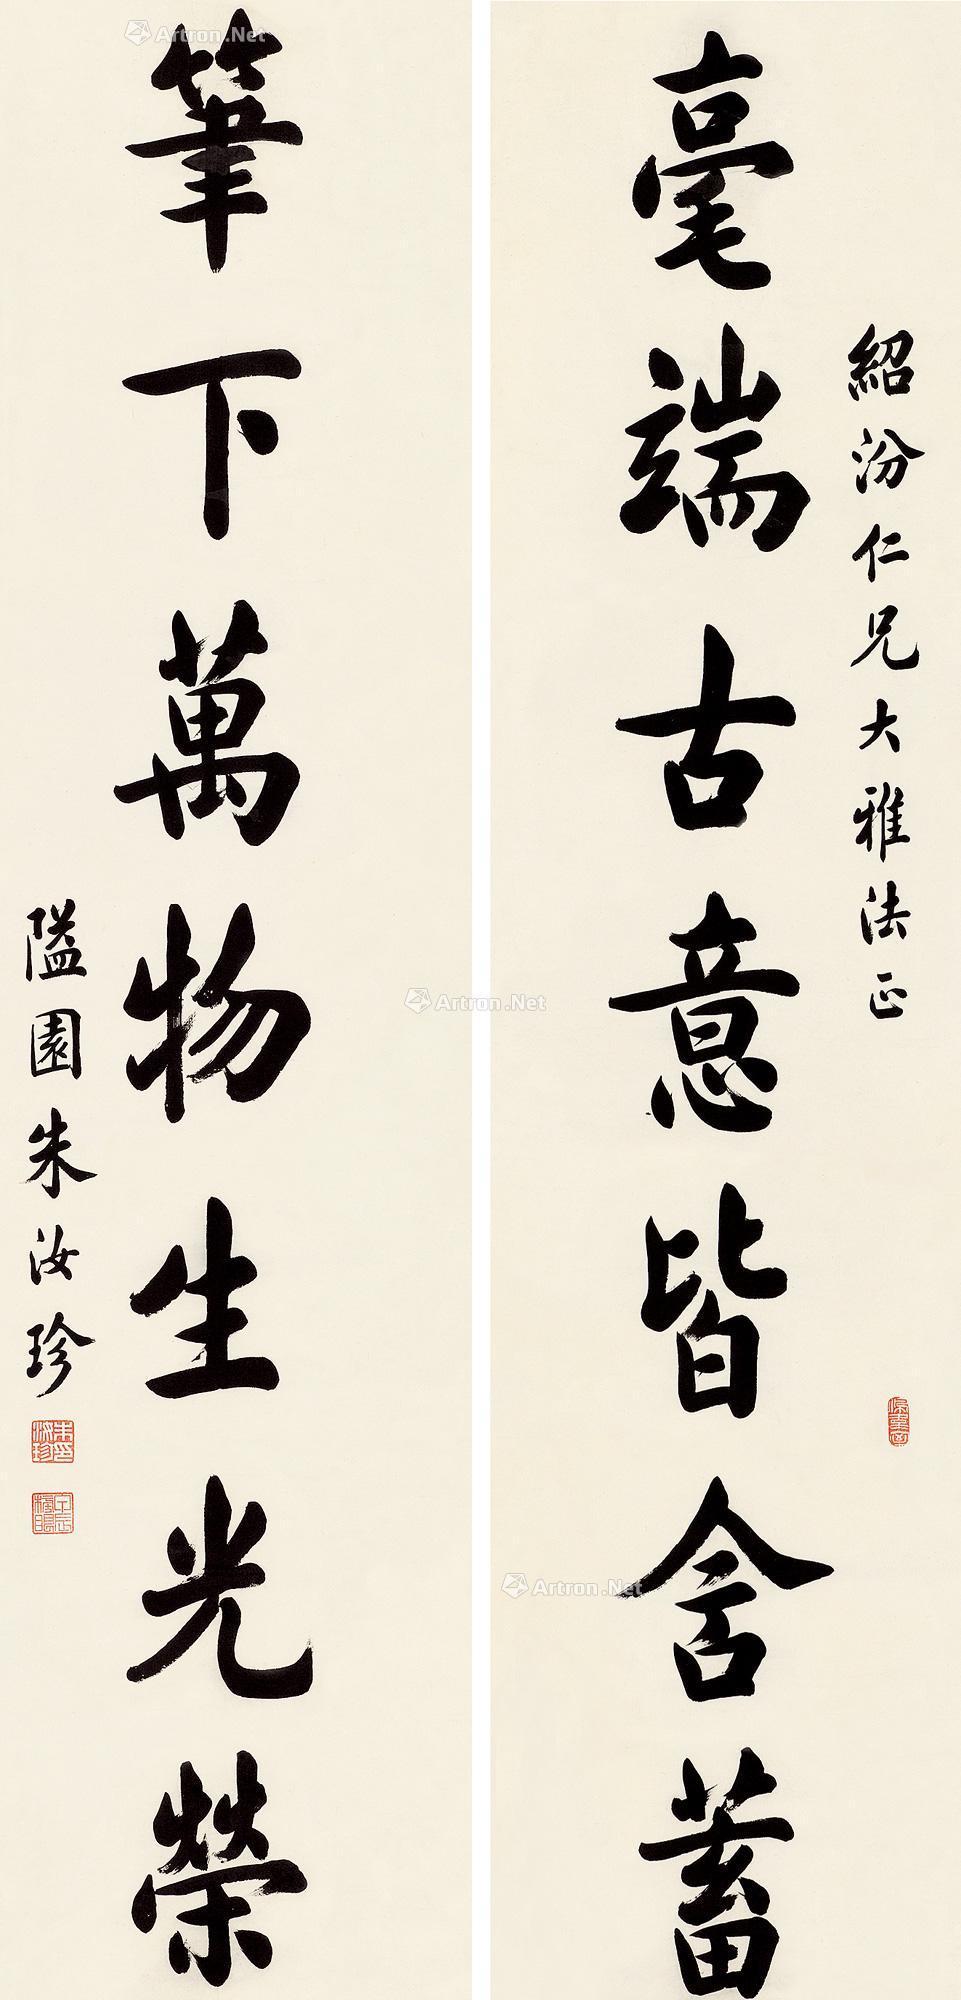 紹汾仁兄大雅法正
毫端古意皆含蓄
筆下萬物生光榮
隘園朱汝珍
Artron.Net
Artron.Net
Artron.Net